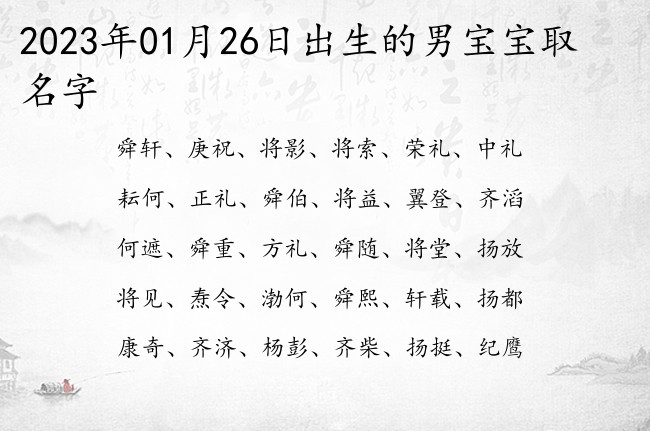 2023年01月26日出生的男宝宝取
名字
舜轩、庚祝、将影、将索、荣礼、中礼
耘何、正礼、舜伯、将益、翼登、齐滔
何遮、舜重、方礼、舜随、将堂、扬放
将见、焘令、渤何、舜熙、轩载、扬都
康奇、齐济、杨彭、齐柴、扬挺、纪鹰